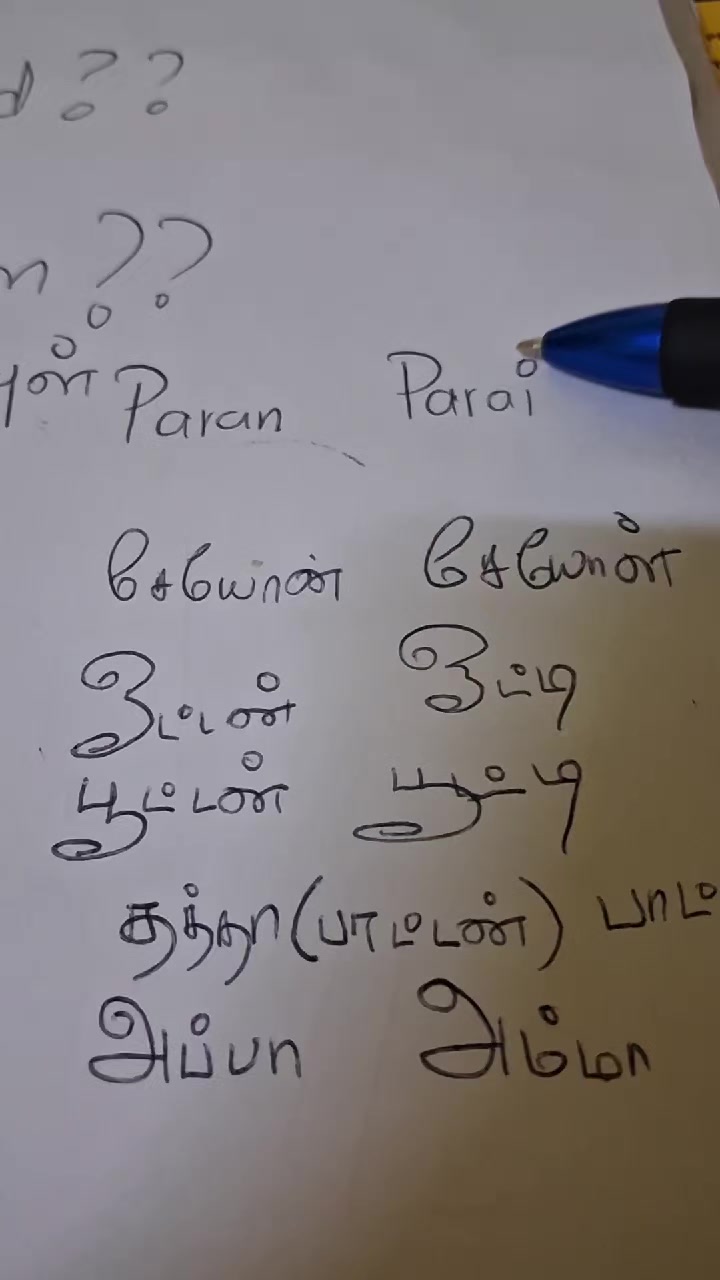 ??
??
Paran Parai
சேயோன் சேயோள்
ஓட்டன் ஓட்டி
பூட்டன் பூட்டி
தத்தா(பாட்டன்)
அப்பா அம்மா